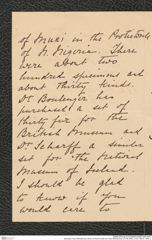 of Muri in the Protectorate
of N. Nigeria. There
were about two
hundred specimens and
about thirty kinds.
Dr. Boulenger has
purchased a set of
thirty five for the
British Museum and
Dr. Scharff a similar
set for the National
Museum of Ireland.
I should be glad
to know if you
would care to